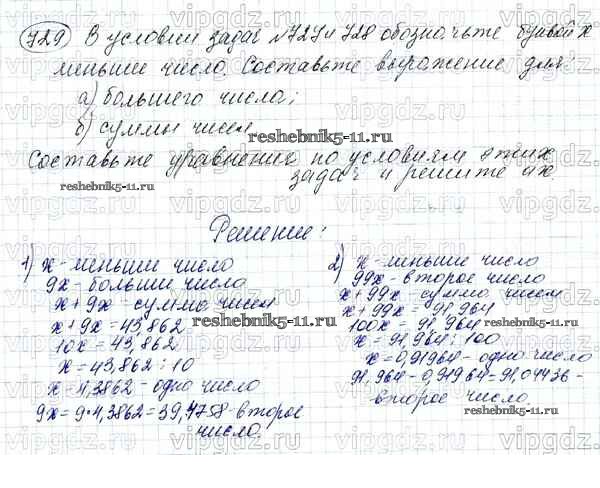 729 В условии задач №727 и 728 обозначьте буквой х
меньшее число. Составьте выражение для:
а) большего числа;
б) суммы чисел
Составьте уравнение по условиям этих
задач и решите их.
Решение:
1) х - меньшее число
9х - большее число
х + 9х - сумма чисел
х + 9х = 43,862
10х = 43,862
х = 43,862 : 10
х = 4,3862 - одно число
9х = 9·4,3862 = 39,4758 - второе
число
2) х - меньшее число
99х - второе число
х + 99х - сумма чисел
х + 99х = 91,964
100х = 91,964
х = 91,964 : 100
х = 0,91964 - одно число
91,964 - 0,91964 = 91,04436 -
второе число.
vipgdz.ru
reshebnik5-11.ru
reshebnik5-11.ru
reshebnik5-11.ru
reshebnik5-11.ru